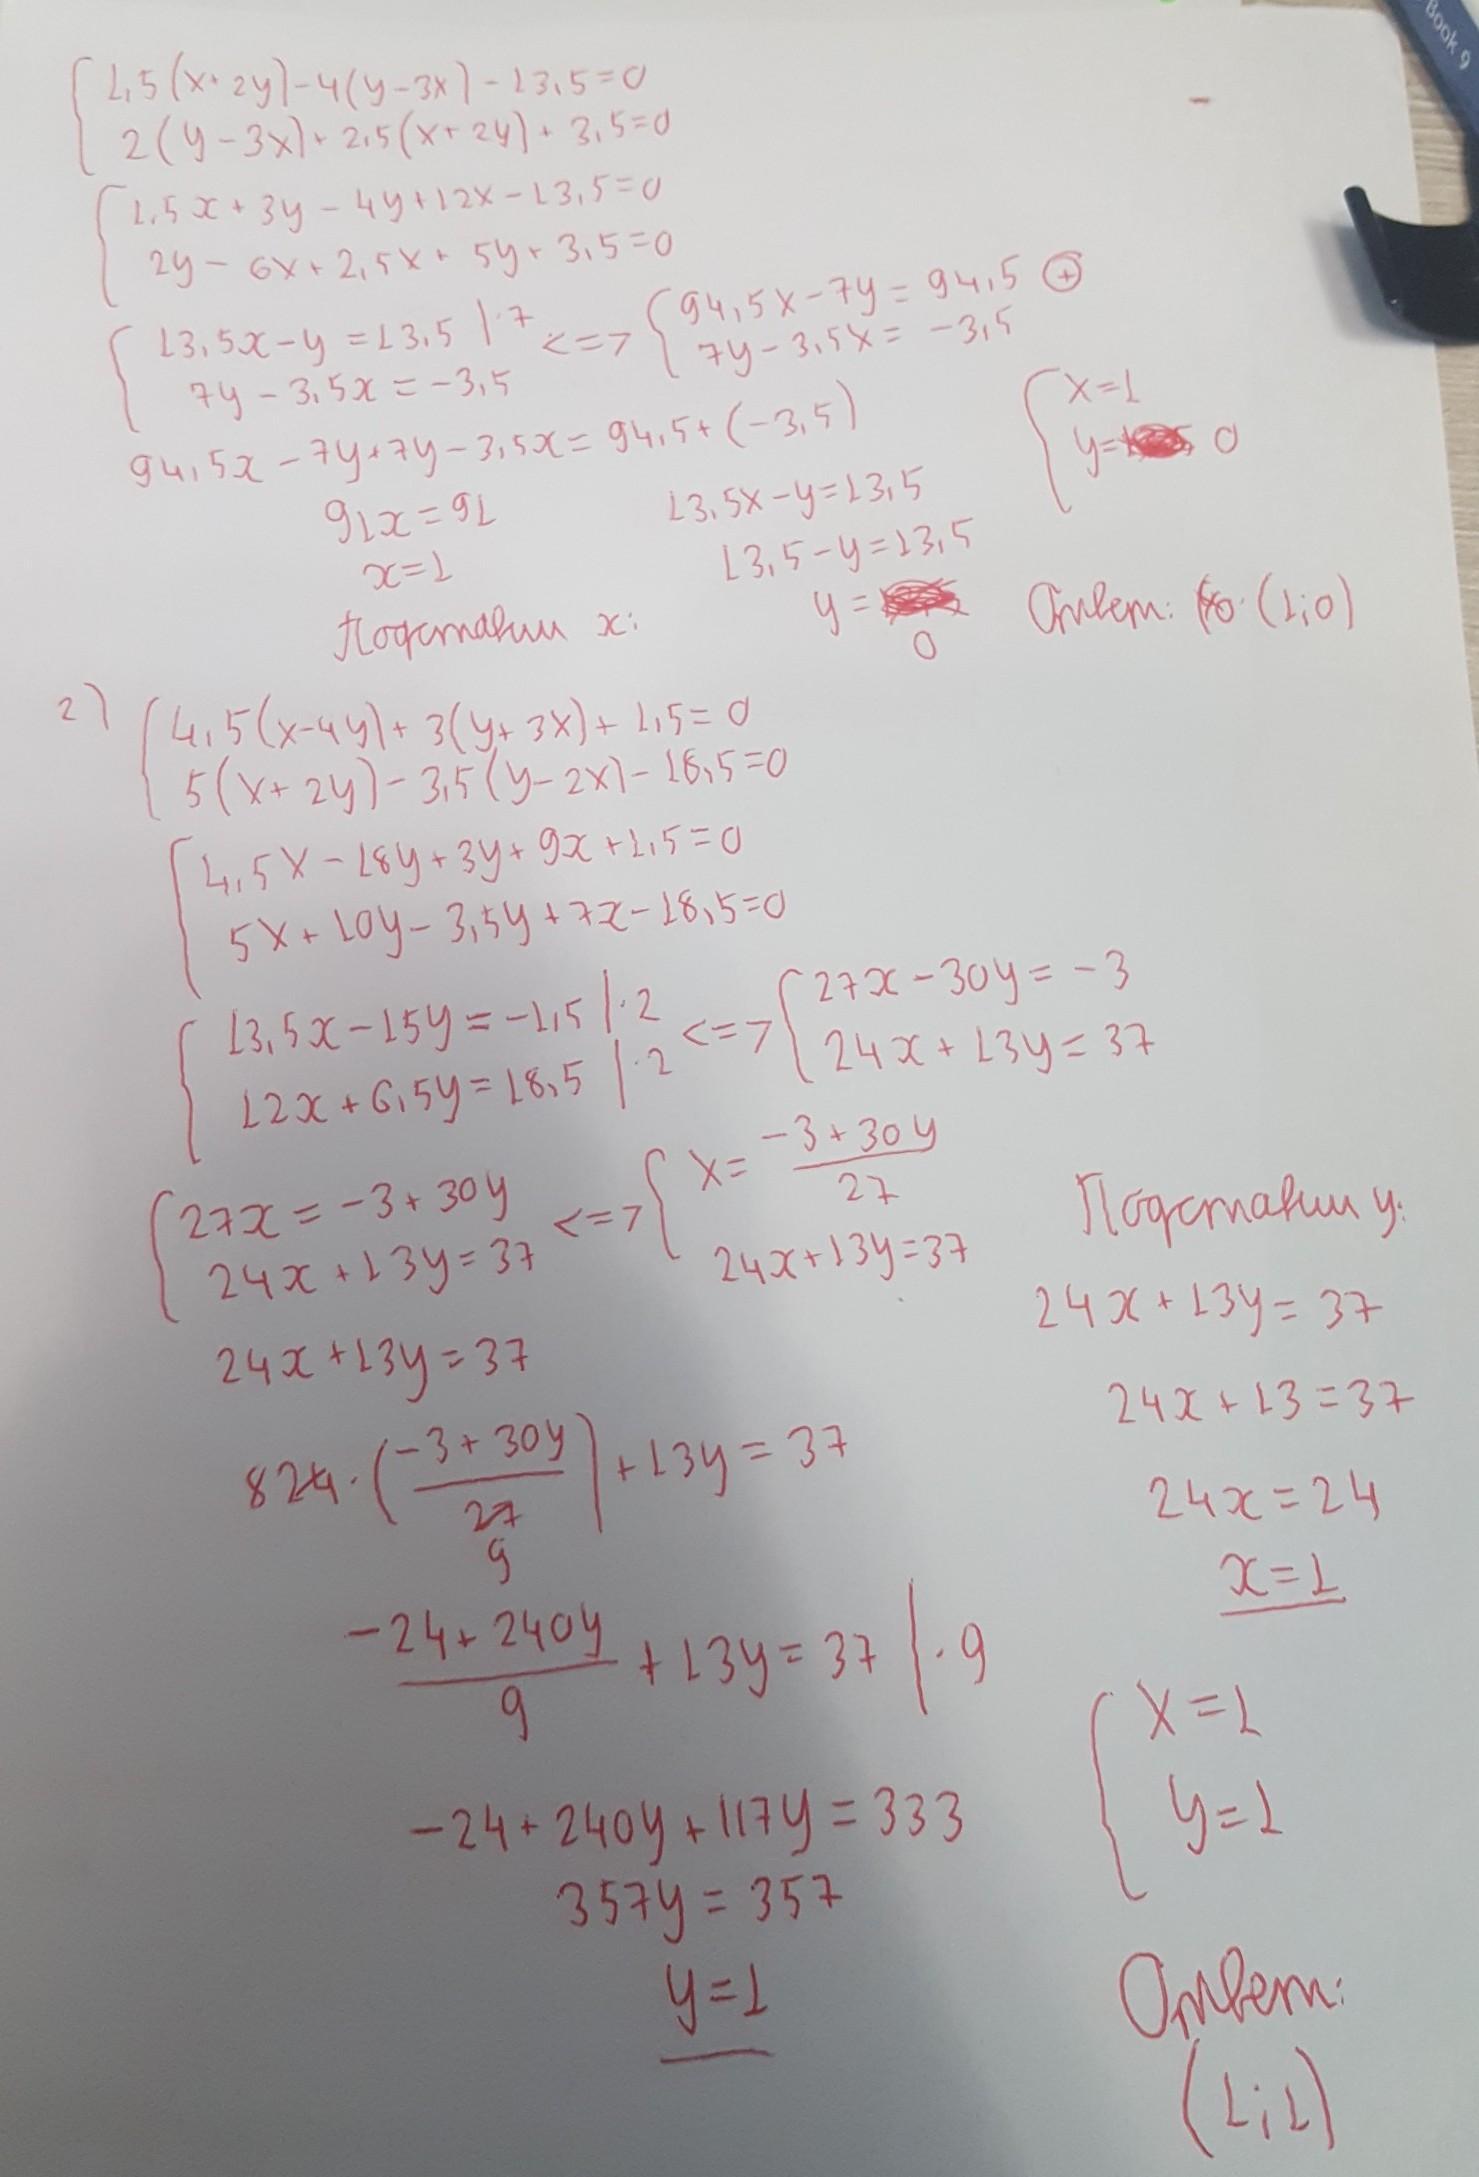 1,5(x+2y)-4(y-3x)-13,5=0
2(y-3x)+2,5(x+2y)+3,5=0
1,5x+3y-4y+12x-13,5=0
2y-6x+2,5x+5y+3,5=0
13,5x-y=13,5 |·7 <=> 94,5x-7y=94,5 ⊕
7y-3,5x=-3,5 7y-3,5x=-3,5
94,5x-7y+7y-3,5x=94,5+(-3,5)
91x=91
x=1
Подставим x:
13,5x-y=13,5
13,5-y=13,5
y=0
x=1
y=0
Ответ: (1;0)
2)
4,5(x-4y)+3(y+3x)+1,5=0
5(x+2y)-3,5(y-2x)-18,5=0
4,5x-18y+3y+9x+1,5=0
5x+10y-3,5y+7x-18,5=0
13,5x-15y=-1,5 |·2 <=> 27x-30y=-3
12x+6,5y=18,5 |·2 24x+13y=37
27x=-3+30y <=> x=(-3+30y)/27
24x+13y=37 24x+13y=37
24x+13y=37
8 24·((-3+30y)/27)+13y=37
9
(-24+240y)/9+13y=37 |·9
-24+240y+117y=333
357y=357
y=1
Подставим y:
24x+13y=37
24x+13=37
24x=24
x=1
x=1
y=1
Ответ:
(1;1)
Book 9